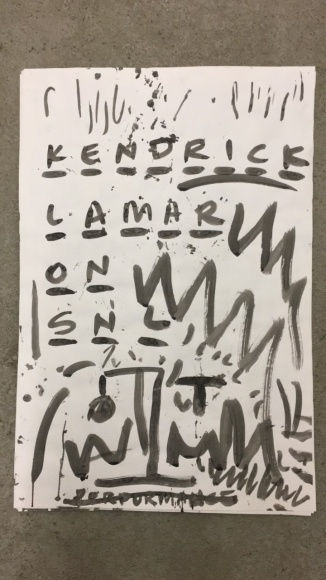 KENDRICK
LAMAR
ON
SNL
PERFORMANCE